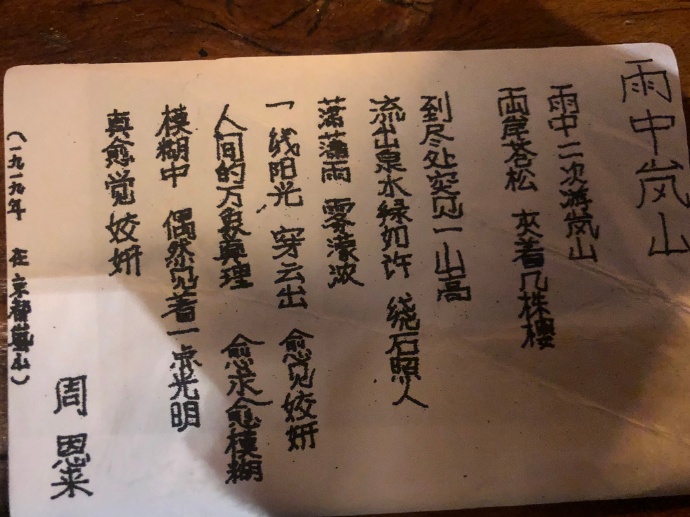 雨中岚山
雨中二次游岚山
两岸苍松 夹着几株樱
到尽处突见一山高
流出泉水绿如许 绕石照人
潇潇雨 雾濛浓
一线阳光 穿云出 愈见姣妍
人间的万象真理 愈求愈模糊
模糊中 偶然见着一点光明
真愈觉姣妍
(一九一九年 在京都嵐山)
周恩来